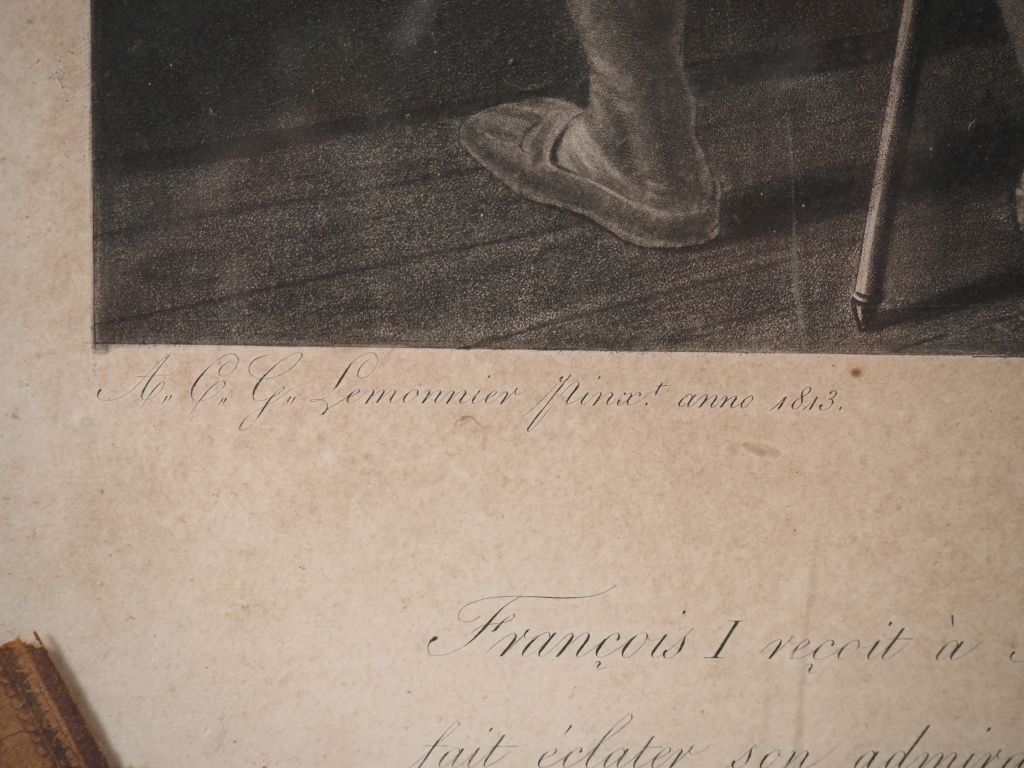 A. C. G. Lemonnier Pinx.t anno 1813.
François I reçoit à
fait éclater son